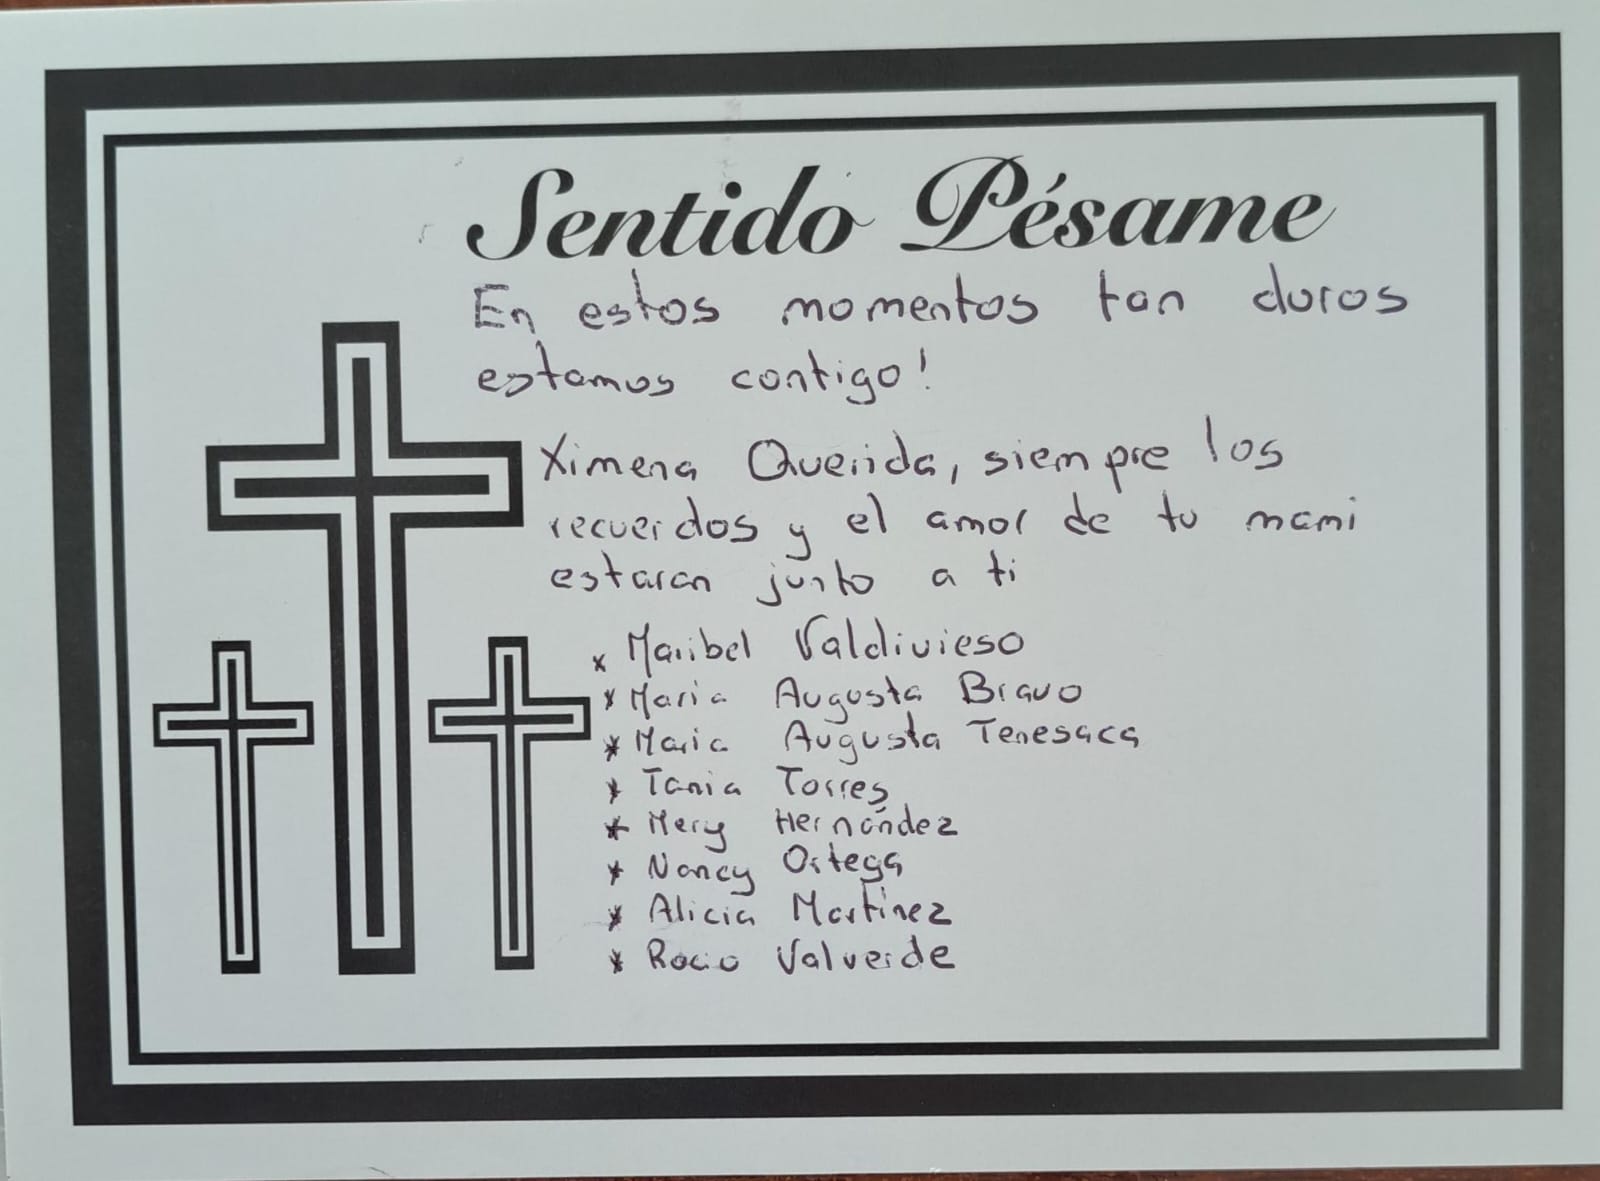 Sentido Pésame
En estos momentos tan duros
estamos contigo!
Ximena Querida, siempre los
recuerdos y el amor de tu mami
estaran junto a ti
x Maribel Valdivieso
* Maria Augusta Bravo
* Maria Augusta Tenesaca
* Tania Torres
* Mery Hernández
* Nancy Ortega
* Alicia Martínez
* Rocio Valverde